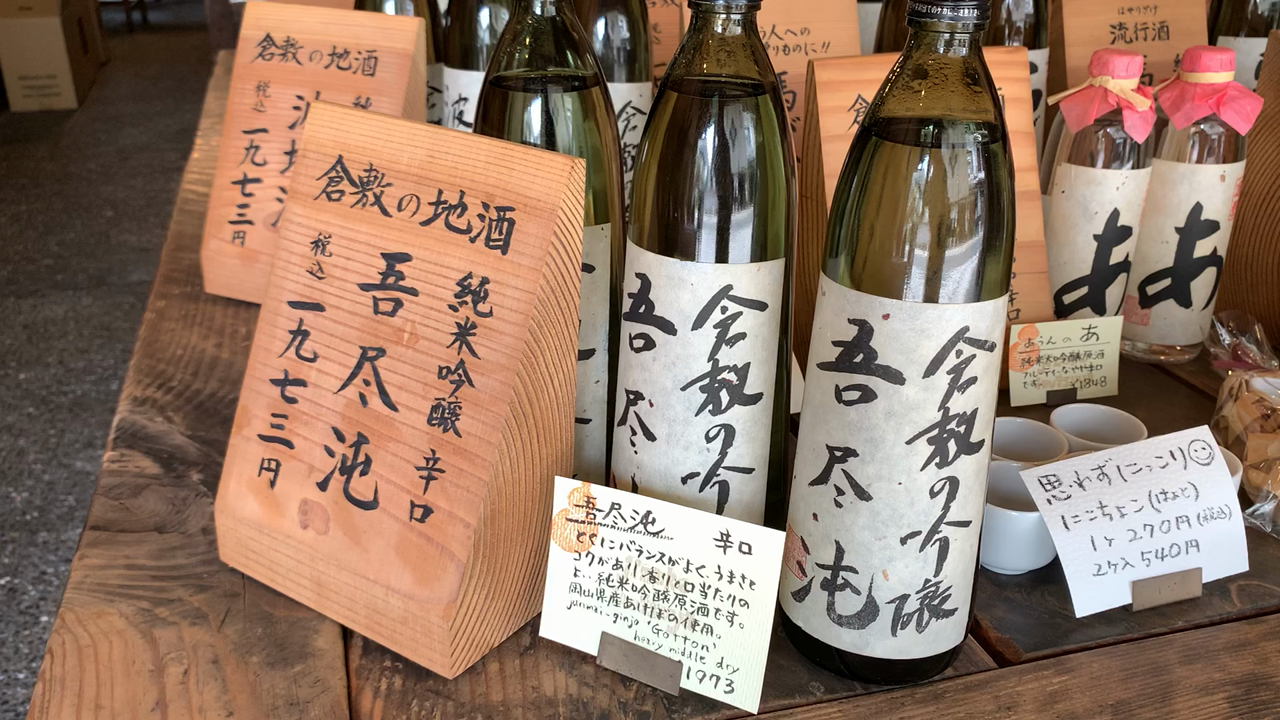 倉敷の地酒
税込
一九七三円
倉敷の地酒
純米吟醸 辛口
吾尽沌
税込
一九七三円
倉敷の吟
吾尽
倉敷の吟醸
吾尽沌
流行酒
あ
あ
あうんのあ
純米大吟醸原酒
フルーティなやや辛口
です。 ¥1848
吾尽沌 辛口
とくにバランスがよく、うまさと
コクがあり、香りと口当たりの
よい純米吟醸原酒です。
岡山県産あけぼの使用。
junmai-ginjo 'Gotton'
heavy middle dry
1973
思わずにっこり
にこちょこ(はぁと)
1ヶ 270円(税込)
2ヶ入 540円